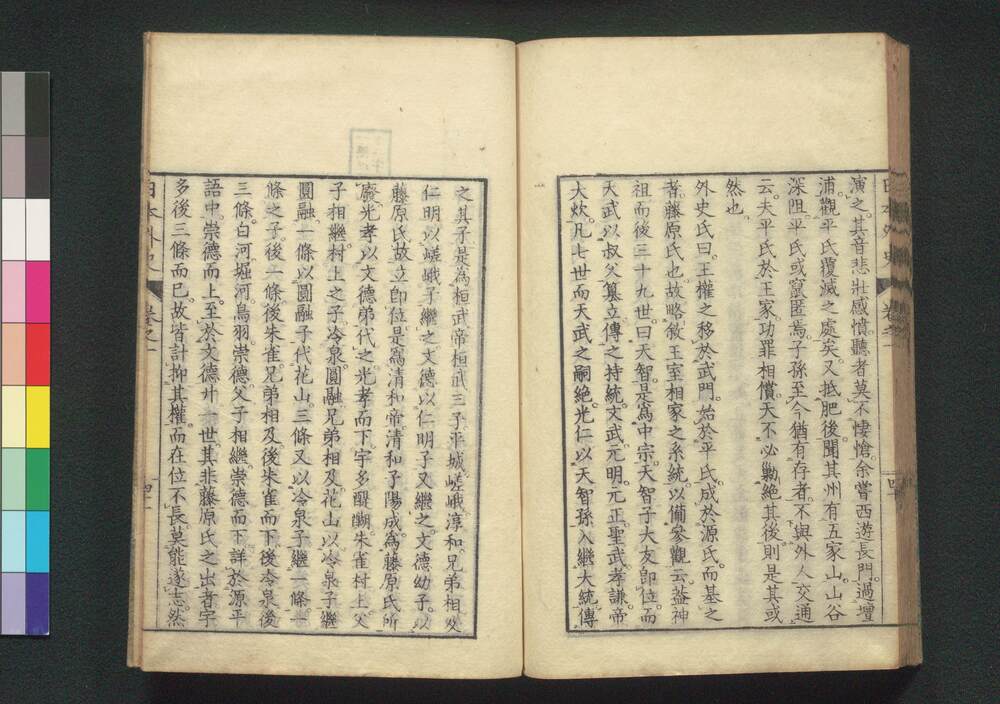 演之其音悲壯感憤聽者莫不悽愴余嘗西遊長門過壇
浦觀平氏覆滅之處矣又抵肥後聞其州有五家山山谷
深阻平氏或竄匿焉子孫至今猶有存者不與外人交通
云夫平氏於王家功罪相償天不必勦絶其後則是其或
然也
外史氏曰王權之移於武門始於平氏成於源氏而基之
者藤原氏也故略敘王室相家之系統以備參觀云蓋神
祖而後三十九世曰天智是爲中宗天智子大友即位而
天武以叔父簒立傳之持統文武元明元正聖武孝謙帝
大炊凡七世而天武之嗣絶光仁以天智孫入繼大統傳
日本外史 卷之一
之其子是為桓武帝桓武三子平城嵯峨淳和兄弟相及
仁明以嵯峨子繼之文德以仁明子又繼之文德幼子以
藤原氏故立即位是爲清和帝清和子陽成爲藤原氏所
廢光孝以文德弟代之光孝而下宇多醍醐朱雀村上父
子相繼村上之子冷泉圓融兄弟相及花山以冷泉子繼
圓融一條以圓融子代花山三條又以冷泉子繼一條一
條之子後一條後朱雀兄弟相及後朱雀而下後冷泉後
三條白河堀河鳥羽崇德父子相繼崇德而下詳於源平
語中崇德而上至於文德廿一世其非藤原氏之出者宇
多後三條而已故皆計抑其權而在位不長莫能遂志然
日本外史 卷之一